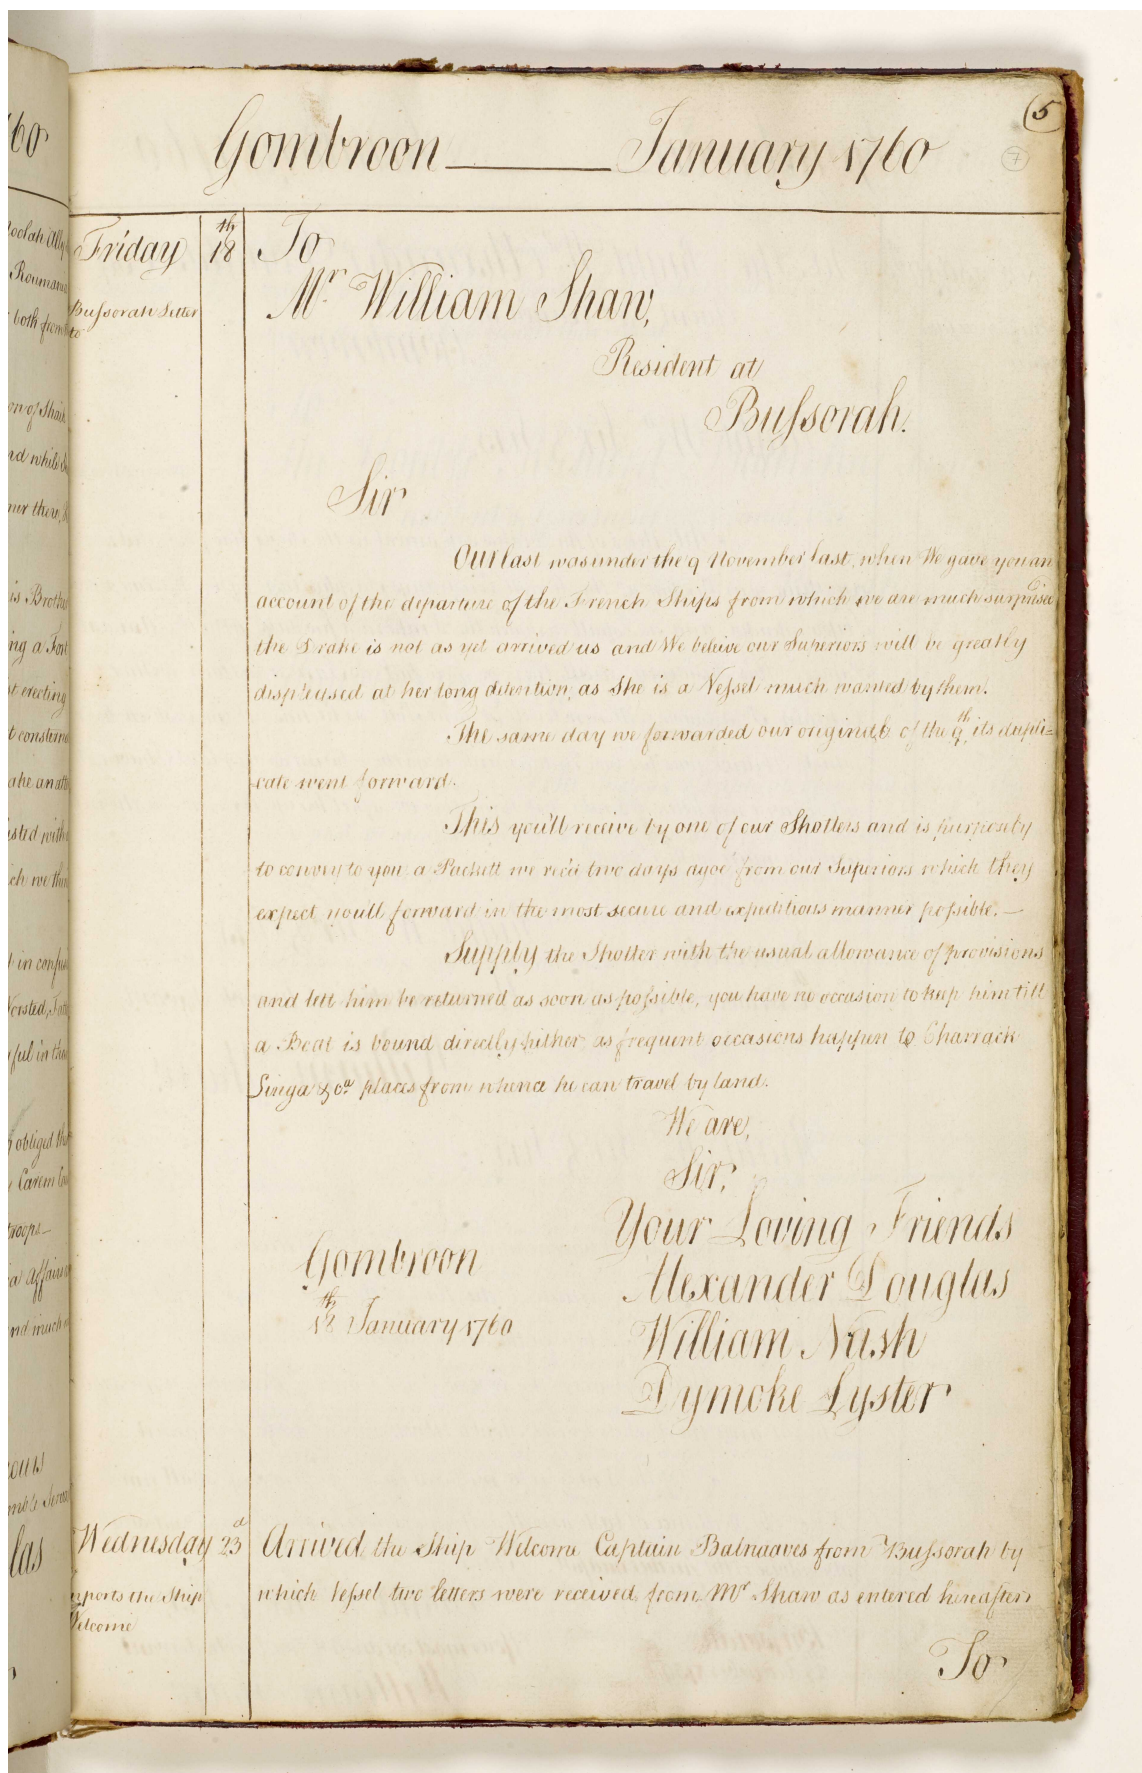 (5
7
Gombroon January 1760
Friday 18th To
Bussorah Letter
to
Mr. William Shaw,
Resident at
Bussorah.
Sir
Our last was under the 9 November last, when We gave you an
account of the departure of the French Ships from which we are much surprised
the Drake is not as yet arrived us and We beleive our Superiors will be greatly
displeased at her long detention, as She is a Vessel much wanted by them.
The same day we forwarded our original of the 9th, its dupli=
cate went forward.
This you'll receive by one of our Shotters and is purposely
to convey to you a Packett we rec'd two days agoe from our Superiors which they
expect you'll forward in the most secure and expeditious manner possible. —
Supply the Shotter with the usual allowance of provisions
and lett him be returned as soon as possible, you have no occasion to keep him till
a Boat is bound directly hither as frequent occasions happen to Charrack
Linga & ca. places from whence he can travel by land.
We are,
Sir,
Your Loving Friends
Gombroon
Alexander Douglas
18th January 1760
William Nash
Dymoke Lyster
Wednesday 23d Arrived the Ship Welcome Captain Balneaves from Bussorah by
which Vessel two letters were received from Mr Shaw as entered hereafter
Imports the Ship
Welcome
To